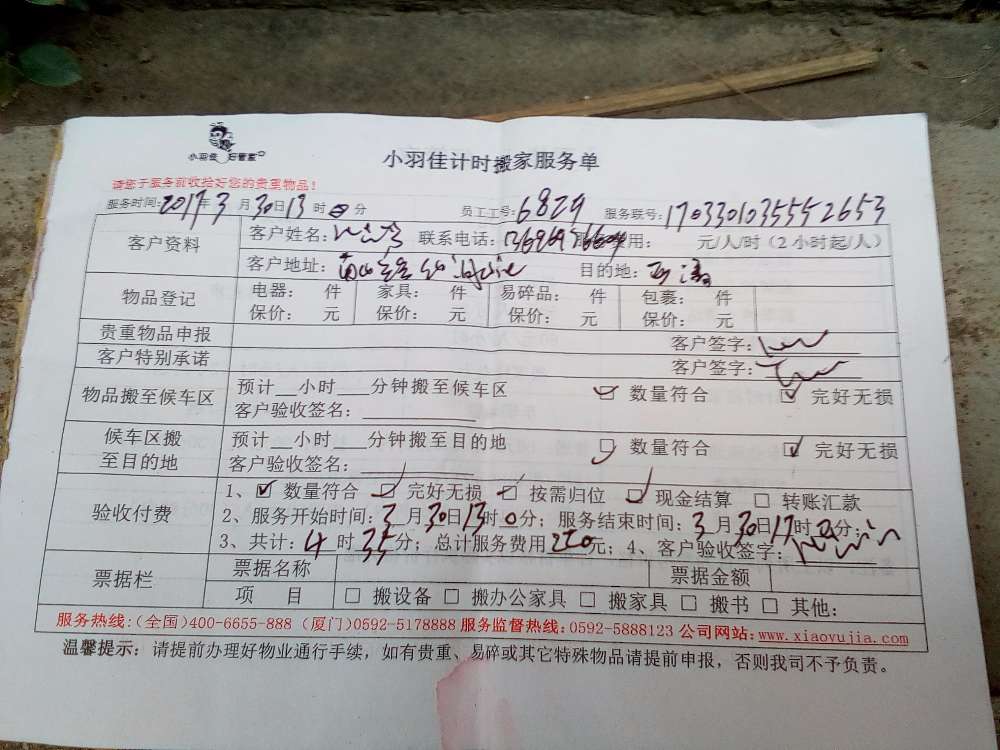 小羽佳 好管家
小羽佳计时搬家服务单
请您于服务前收拾好您的贵重物品!
服务时间:2017年3月30日13时0分 员工工号:6829 服务联号:1703301035552653
客户资料 客户姓名: 联系电话: 用: 元/人/时(2小时起/人)
客户地址: 目的地:
物品登记 电器: 件 家具: 件 易碎品: 件 包裹: 件
保价: 元 保价: 元 保价: 元 保价: 元
贵重物品申报 客户签字:
客户特别承诺 客户签字:
物品搬至候车区 预计__小时___分钟搬至候车区 ☑ 数量符合 ☑ 完好无损
客户验收签名:
候车区搬至目的地 预计__小时___分钟搬至目的地 ☑ 数量符合 ☑ 完好无损
客户验收签名:
验收付费 1、☑ 数量符合 ☑ 完好无损 ☑ 按需归位 ☑ 现金结算 □ 转账汇款
2、服务开始时间:3月30日13时0分;服务结束时间:3月30日17时 分;
3、共计:4时35分;总计服务费用250元;4、客户验收签字:
票据栏 票据名称 票据金额
项 目 □ 搬设备 □ 搬办公家具 □ 搬家具 □ 搬书 □ 其他:
服务热线:(全国)400-6655-888 (厦门)0592-5178888 服务监督热线:0592-5888123 公司网站:www.xiaoyujia.com
温馨提示:请提前办理好物业通行手续,如有贵重、易碎或其它特殊物品请提前申报,否则我司不予负责。